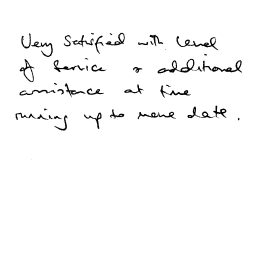 Very satisfied with level
of service & additional
assistance at time
running up to move date.